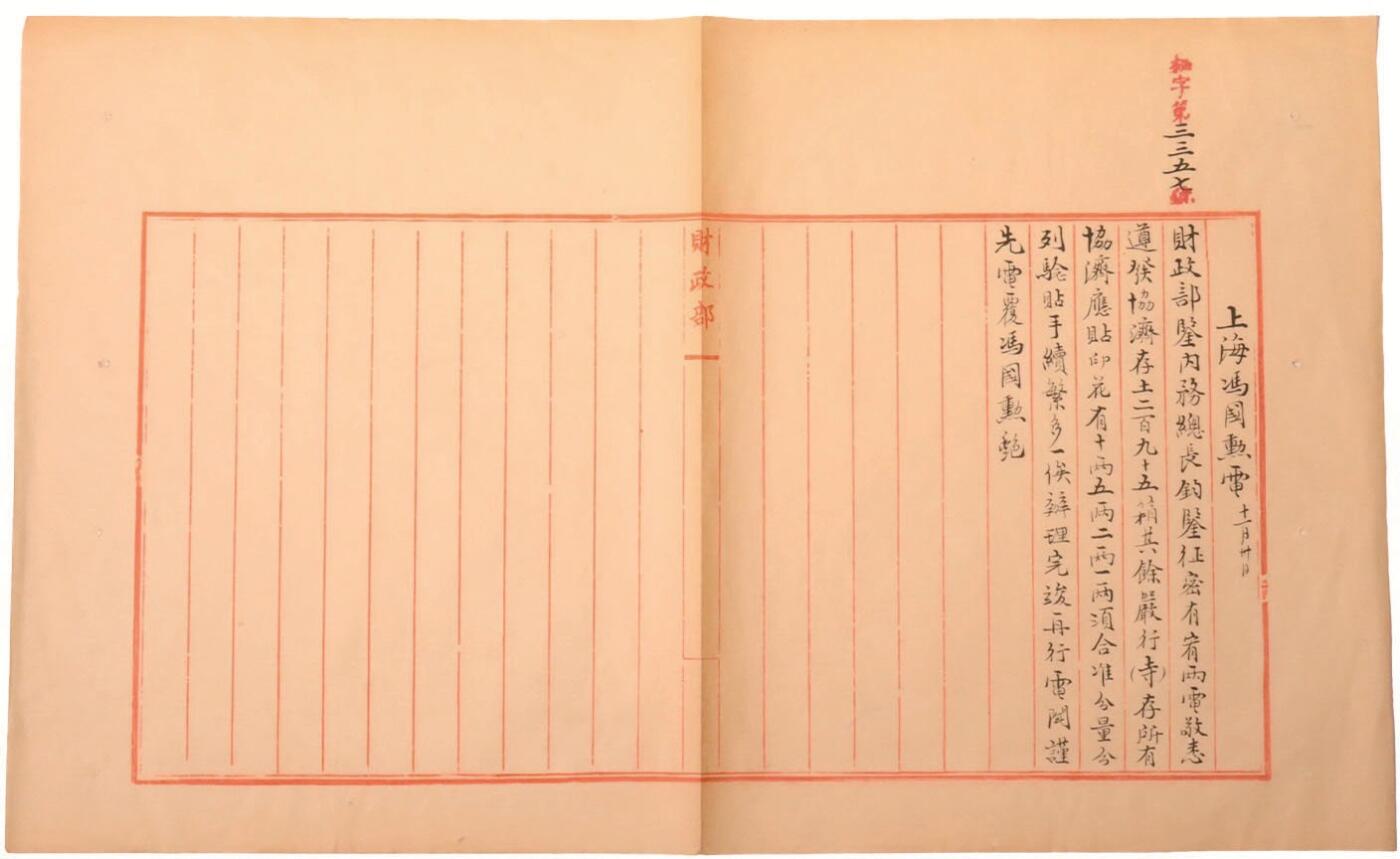 秘字第三三五七號
上海馮國勲電 十一月卅日
財政部鑒內務總長鈞鑒征密有宥兩電敬悉
遵發協濟存土二百九十五箱其餘嚴行(寺)存所有
協濟應貼印花有十兩五兩二兩一兩須合准分量分
列驗貼手續繁多一俟辦理完竣再行電聞謹
先電覆馮國勲艶
財政部